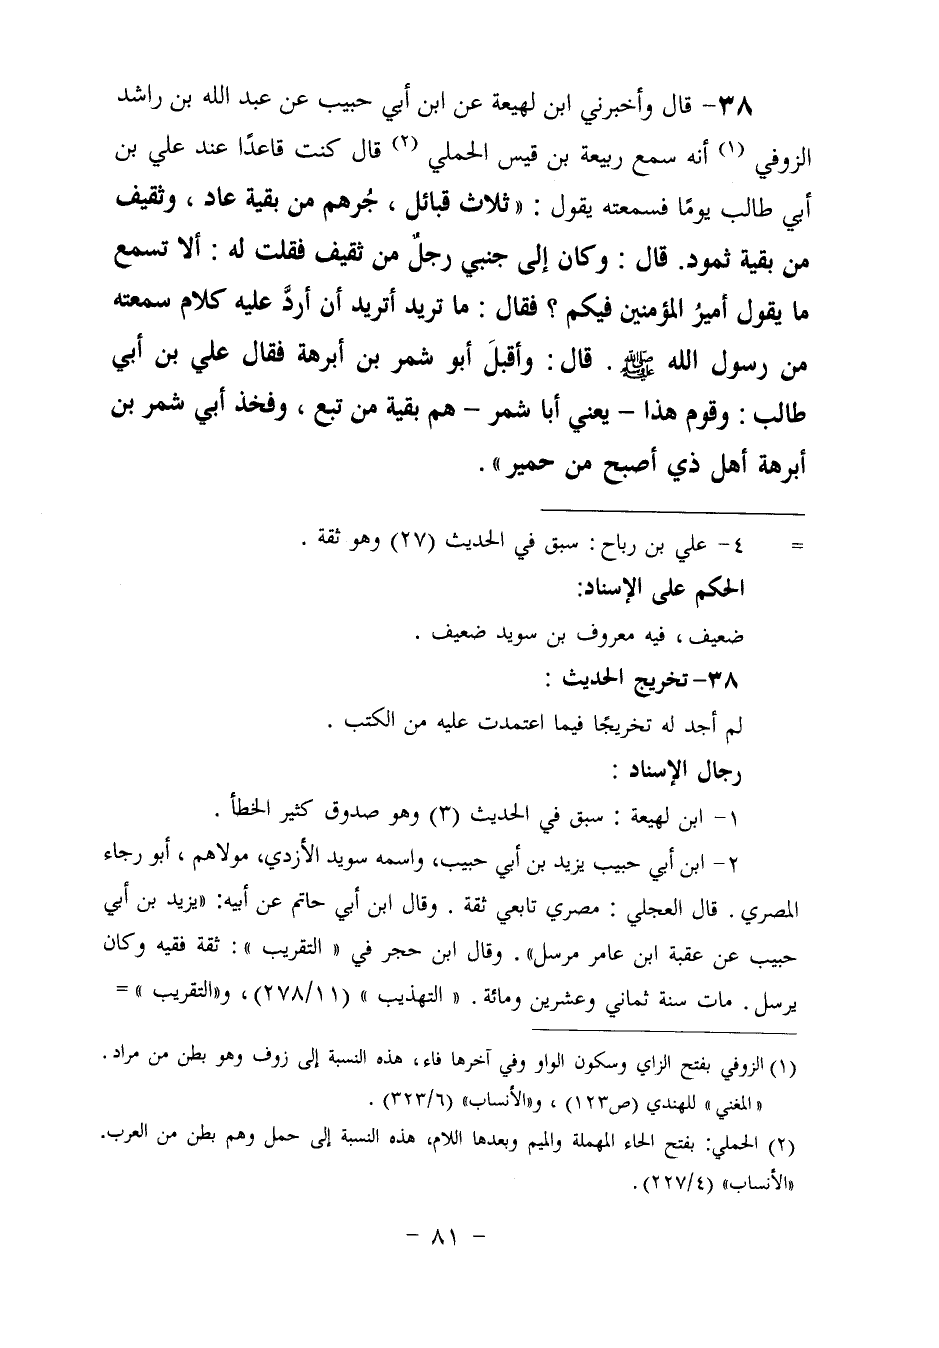 ٣٨- قال وأخبرني ابن لهيعة عن ابن أبي حبيب عن عبد الله بن راشد
الزوفي (١) أنه سمع ربيعة بن قيس الحملي (٢) قال كنت قاعدًا عند علي بن
أبي طالب يومًا فسمعته يقول : « ثلاث قبائل ، جُرهم من بقية عاد ، وثقيف
من بقية ثمود. قال : وكان إلى جنبي رجلٌ من ثقيف فقلت له : ألا تسمع
ما يقول أميرُ المؤمنين فيكم ؟ فقال : ما تريد أتريد أن أردَّ عليه كلام سمعته
من رسول الله ﷺ . قال : وأقبلَ أبو شمر بن أبرهة فقال علي بن أبي
طالب : وقوم هذا – يعني أبا شمر – هم بقية من تبع ، وفخذ أبي شمر بن
أبرهة أهل ذي أصبح من حمير » .
= ٤- علي بن رباح : سبق في الحديث (٢٧) وهو ثقة .
الحكم على الإسناد:
ضعيف ، فيه معروف بن سويد ضعيف .
٣٨- تخريج الحديث :
لم أجد له تخريجًا فيما اعتمدت عليه من الكتب .
رجال الإسناد :
١- ابن لهيعة : سبق في الحديث (٣) وهو صدوق كثير الخطأ .
٢- ابن أبي حبيب يزيد بن أبي حبيب، واسمه سويد الأزدي، مولاهم ، أبو رجاء
المصري . قال العجلي : مصري تابعي ثقة . وقال ابن أبي حاتم عن أبيه: «يزيد بن أبي
حبيب عن عقبة ابن عامر مرسل» . وقال ابن حجر في « التقريب » : ثقة فقيه وكان
يرسل . مات سنة ثماني وعشرين ومائة . « التهذيب » (٢٧٨/١١) ، و«التقريب » =
(١) الزوفي بفتح الزاي وسكون الواو وفي آخرها فاء ، هذه النسبة إلى زوف وهو بطن من مراد .
« المغني » للهندي (ص١٢٣) ، و«الأنساب» (٣٢٣/٦) .
(٢) الحملي: بفتح الحاء المهملة والميم وبعدها اللام، هذه النسبة إلى حمل وهم بطن من العرب.
«الأنساب» (٢٢٧/٤) .
– ٨١ –